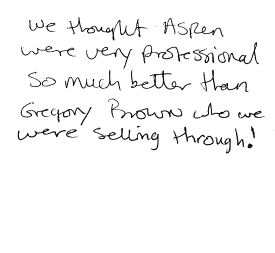 We thought Aspen
were very professional
So much better than
Gregory Brown who we
were selling through!